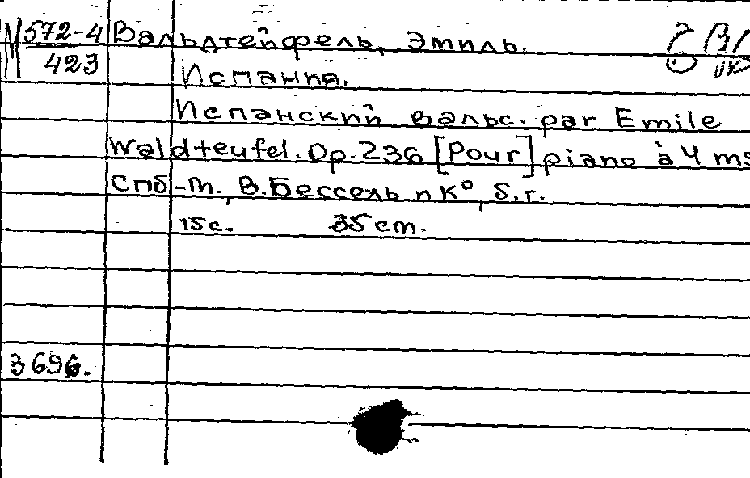 М 572-4 Вальдтейфель, Эмиль.
423
Испанка.
Испанский вальс. par Emile
Waldteufel. Op. 236 [Pour] piano à 4 ms
Спб-М., В. Бессель и К°, б.г.
15 с. 35 cm.
3696.